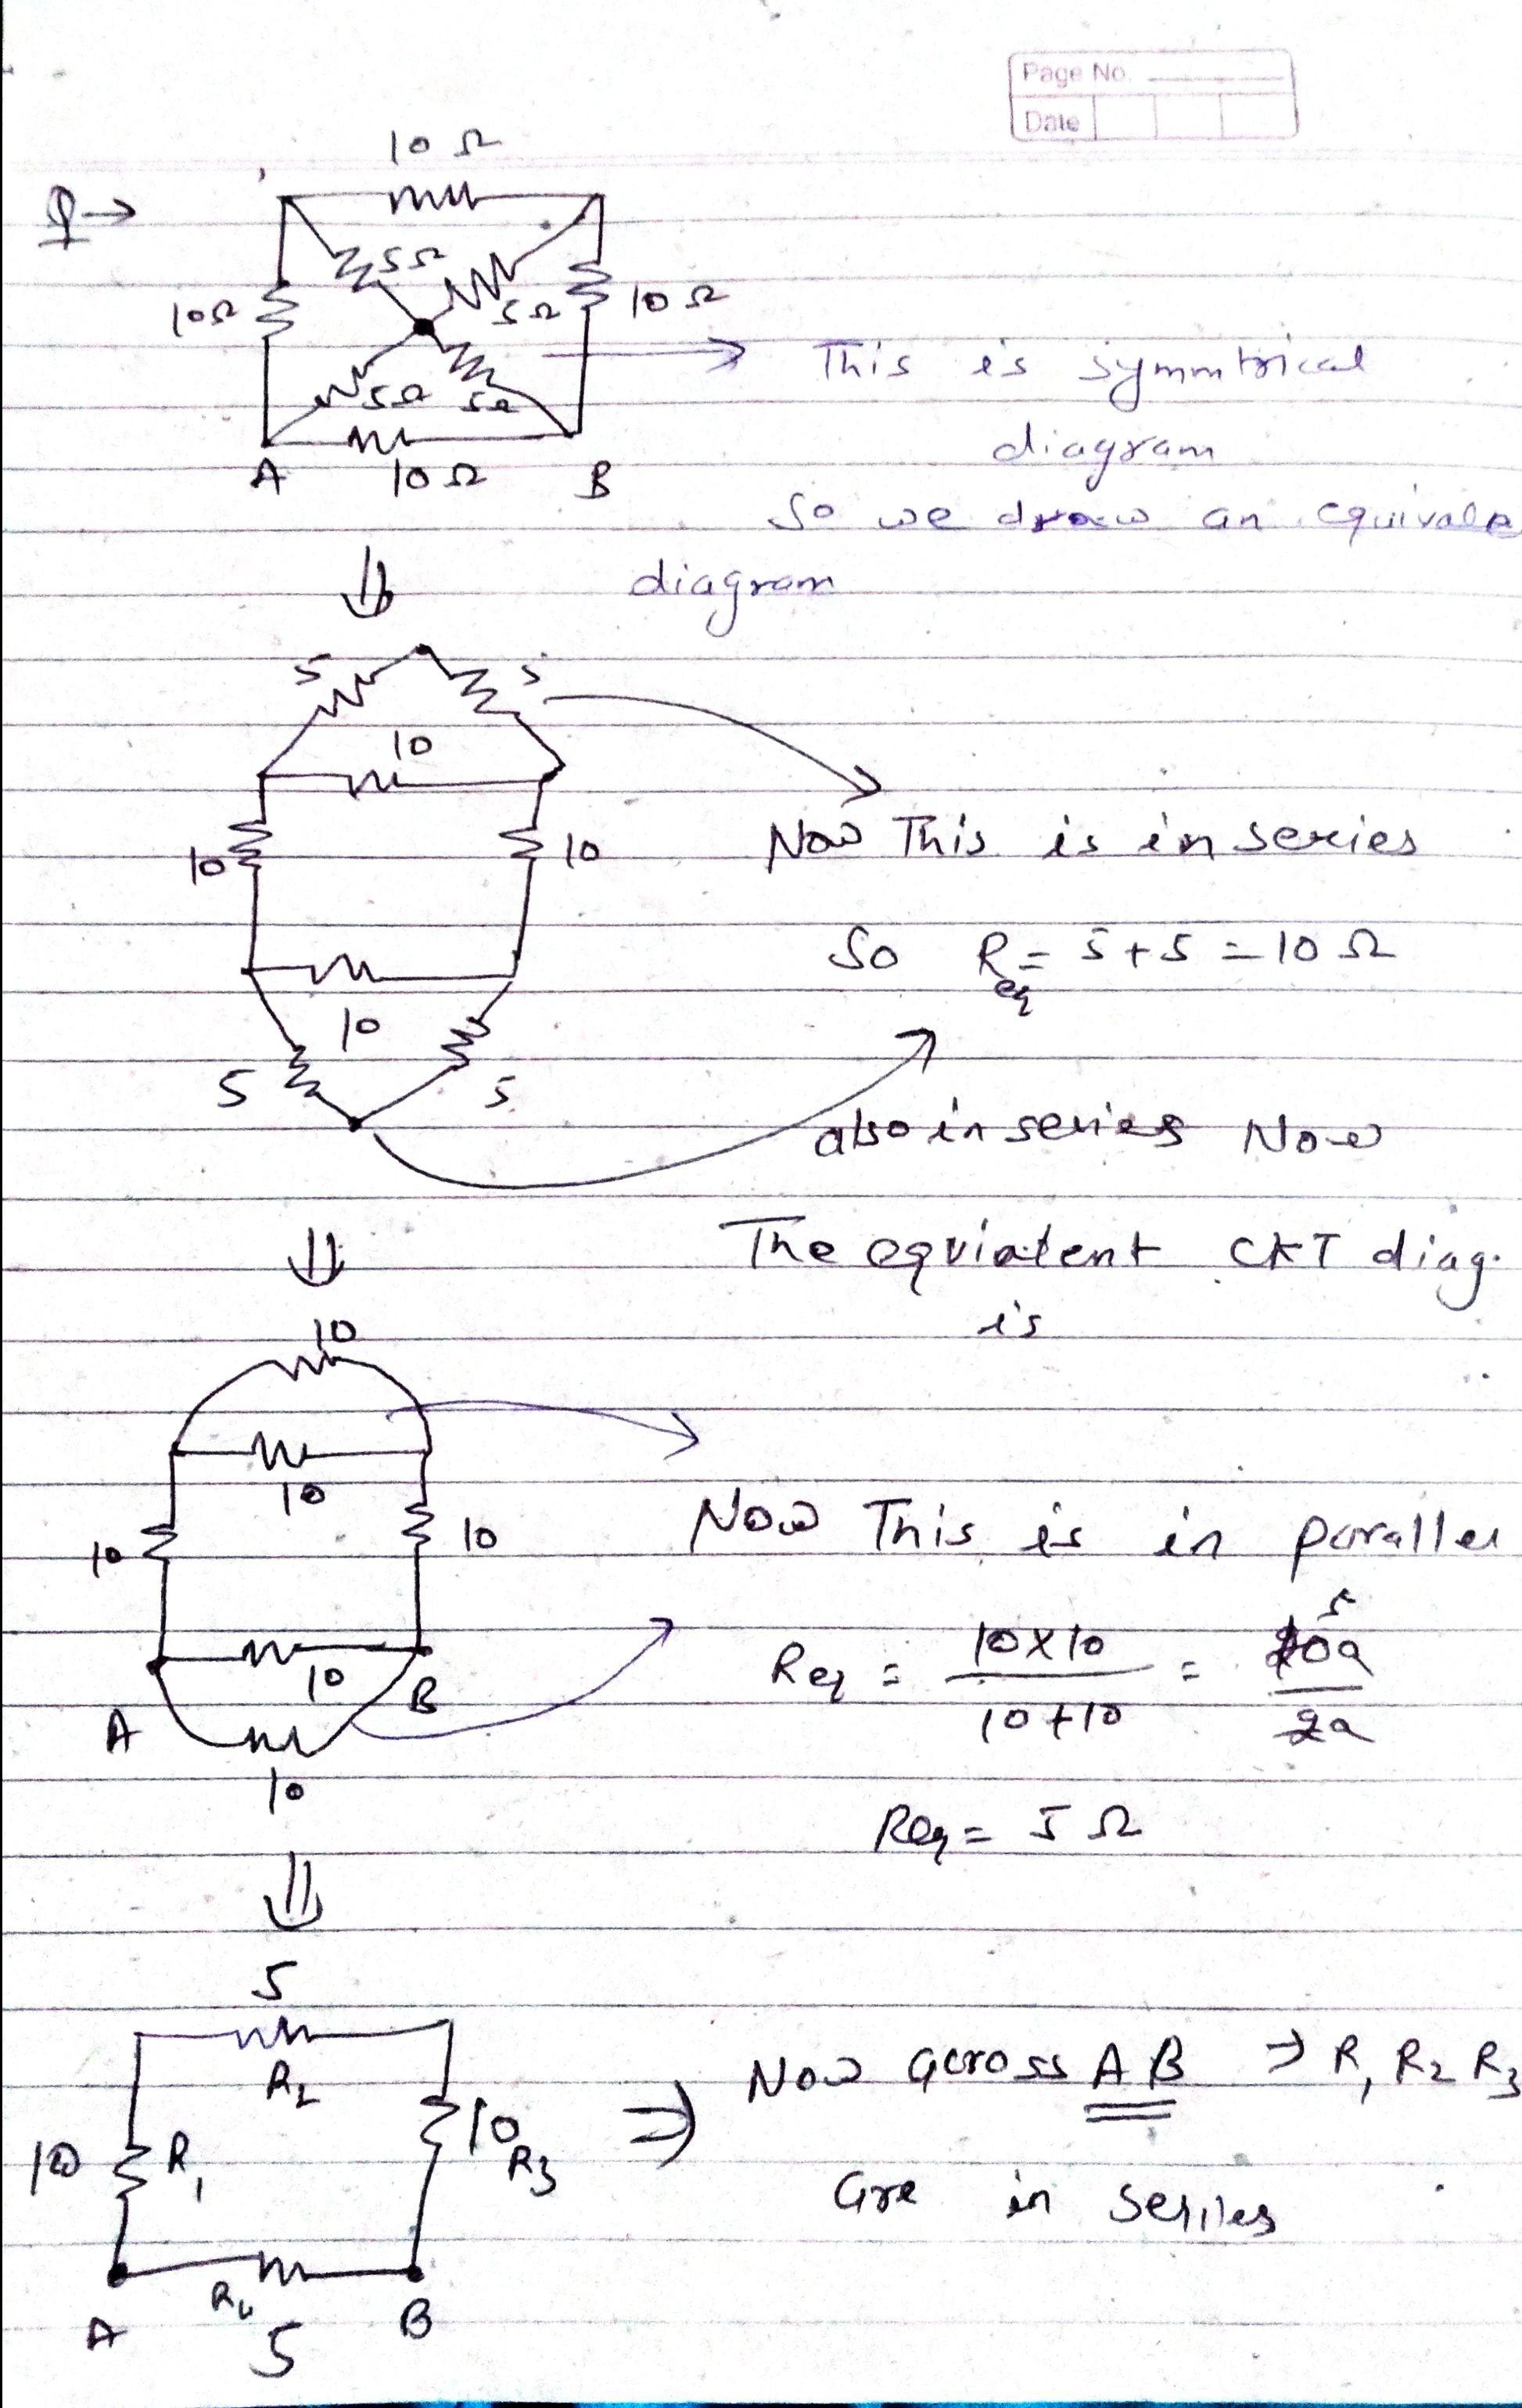 Page No.
Date
10 Ω
Q →
5Ω
5Ω
10Ω
10 Ω
5Ω 5Ω
A 10 Ω B
This is symmtrical
diagram
So we draw an equivale
diagram
5 5
10
10 10
10
5 5
Now This is in series
So Req = 5+5 = 10 Ω
also in series Now
The eqvialent CKT diag.
is
10
10
10 10
10
A B
10
Now This is in parallel
Req = 10×10 / 10+10 = 100 / 20 5
Req = 5 Ω
5
R2
10 R1
10 R3
A R4 B
5
⇒ Now across AB ⇒ R1 R2 R3
are in series